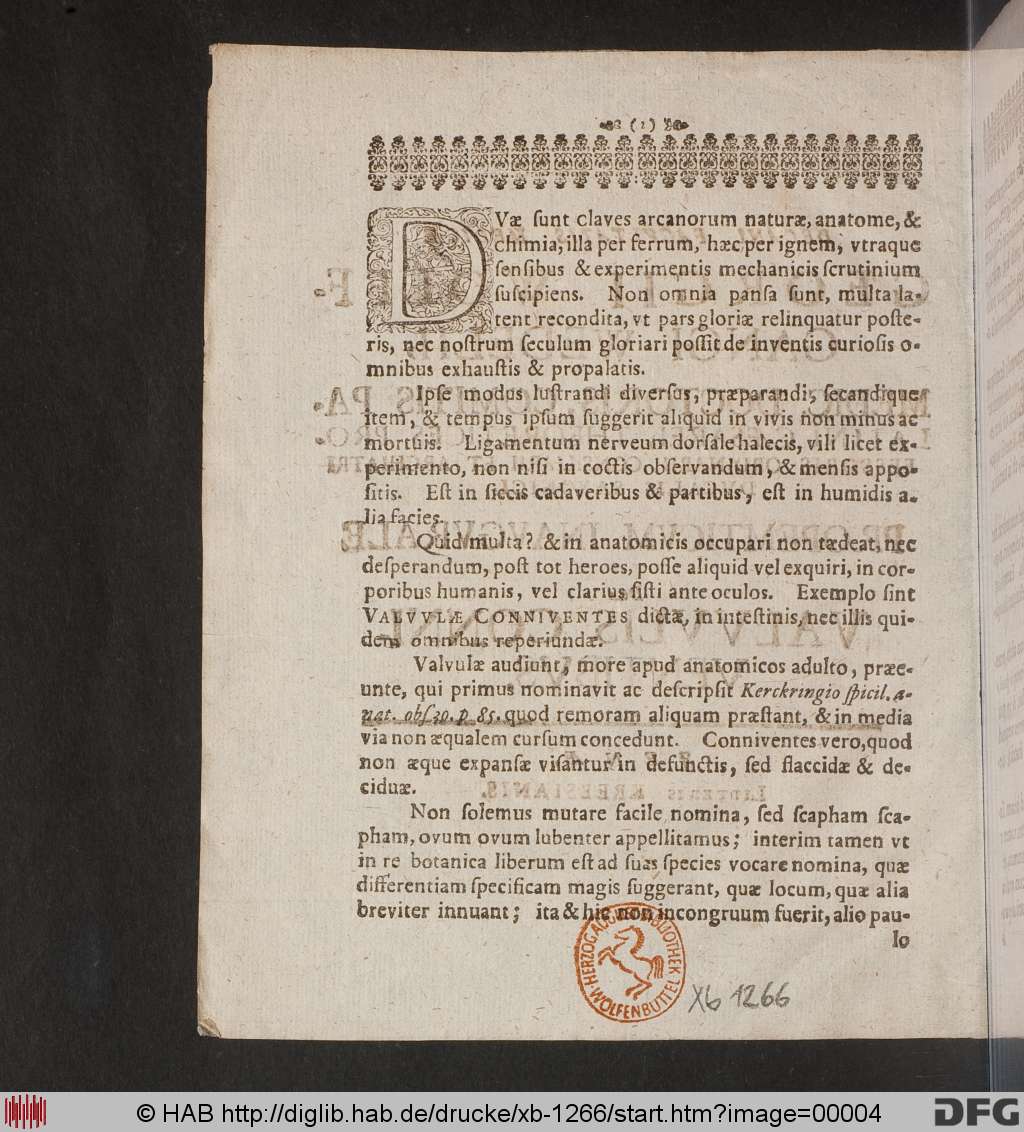 (1)
DVæ sunt claves arcanorum naturæ, anatome, &
chimia, illa per ferrum, hæc per ignem, vtraque
sensibus & experimentis mechanicis scrutinium
suscipiens. Non omnia pansa sunt, multa la-
tent recondita, vt pars gloriæ relinquatur poste-
ris, nec nostrum seculum gloriari possit de inventis curiosis o-
mnibus exhaustis & propalatis.
Ipse modus lustrandi diversus, præparandi, secandique
item, & tempus ipsum suggerit aliquid in vivis non minus ac
mortuis. Ligamentum nerveum dorsale halecis, vili licet ex-
perimento, non nisi in coctis observandum, & mensis appo-
sitis. Est in siccis cadaveribus & partibus, est in humidis a-
lia facies.
Quid multa? & in anatomicis occupari non tædeat, nec
desperandum, post tot heroes, posse aliquid vel exquiri, in cor-
poribus humanis, vel clarius sisti ante oculos. Exemplo sint
VALVVLÆ CONNIVENTES dictæ, in intestinis, nec illis qui-
dem omnibus reperiundæ.
Valvulæ audiunt, more apud anatomicos adulto, præe-
unte, qui primus nominavit ac descripsit Kerckringio spicil. a-
nat. obs. 30. p. 85. quod remoram aliquam præstant, & in media
via non æqualem cursum concedunt. Conniventes vero, quod
non æque expansæ visantur in defunctis, sed flaccidæ & de-
ciduæ.
Non solemus mutare facile nomina, sed scapham sca-
pham, ovum ovum lubenter appellitamus; interim tamen vt
in re botanica liberum est ad suas species vocare nomina, quæ
differentiam specificam magis suggerant, quæ locum, quæ alia
breviter innuant; ita & hic non incongruum fuerit, alio pau-
lo
HERZOG AUGUST BIBLIOTHEK
WOLFENBÜTTEL
Xb 1266
© HAB http://diglib.hab.de/drucke/xb-1266/start.htm?image=00004
DFG